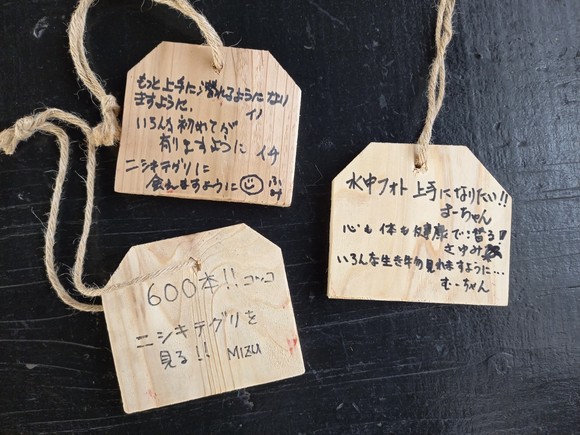 もっと上手に潜れるようになり
ますように。
イノ
いろんな初めてが
有りますように
イチ
ニシキテグリに
会えますように☺ ふみ
水中フォト上手になりたい!!
まーちゃん
心も体も健康で潜る
さゆみ
いろんな生き物見れますように…
むーちゃん
600本!! コツコツ
ニシキテグリを
見る!! MIZU